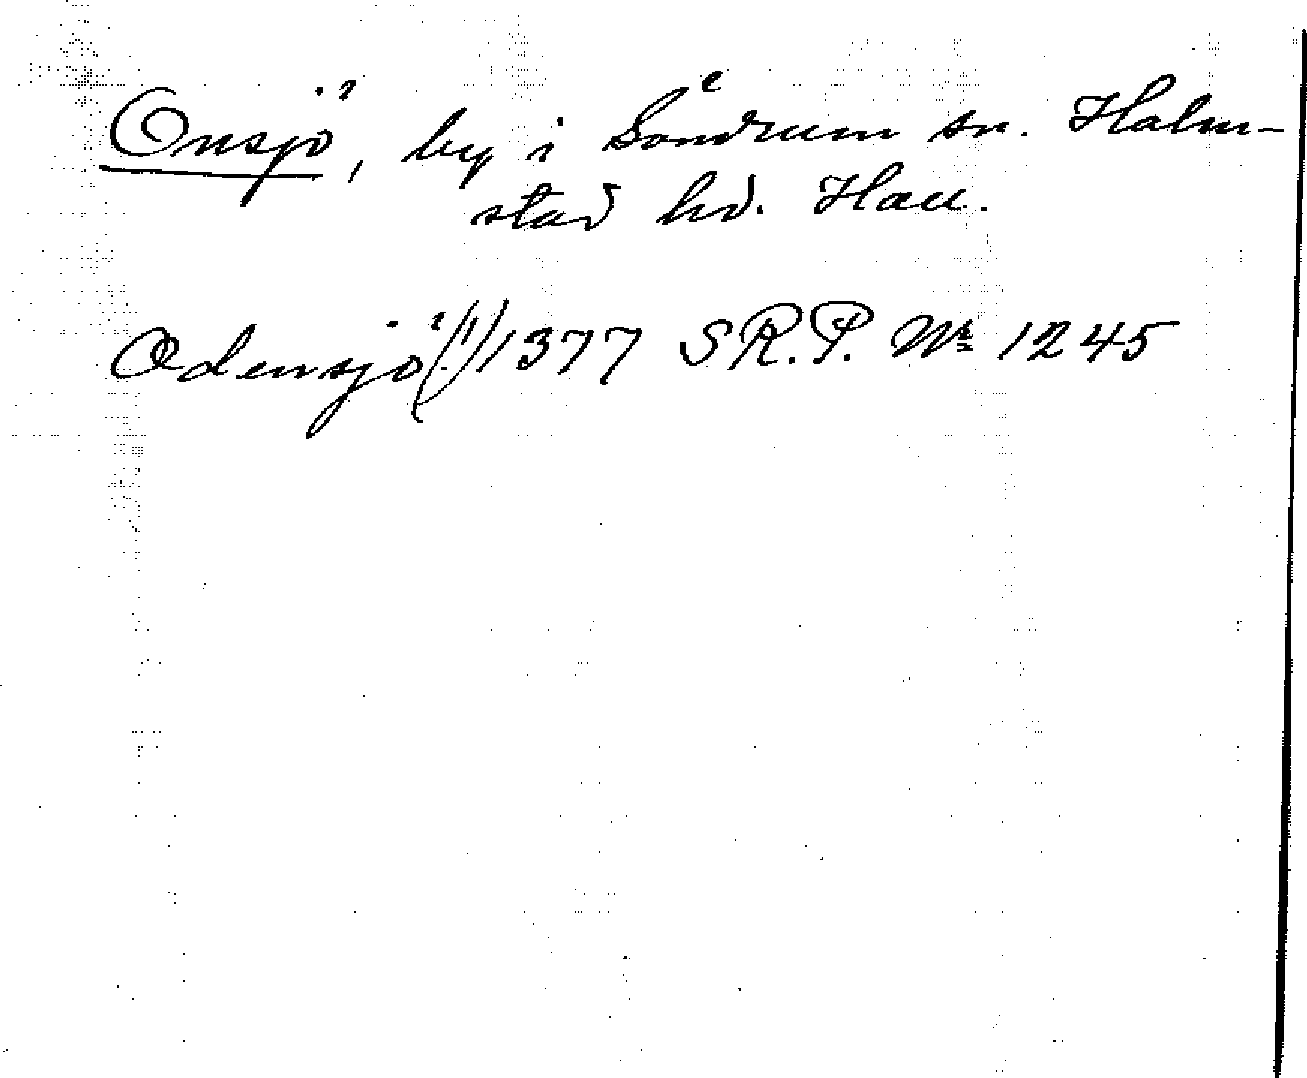 Onsjö, by i Söndrum sn. Halm-
stad hd. Hall.
Odensjö (!) 1377 S R. P. No 1245